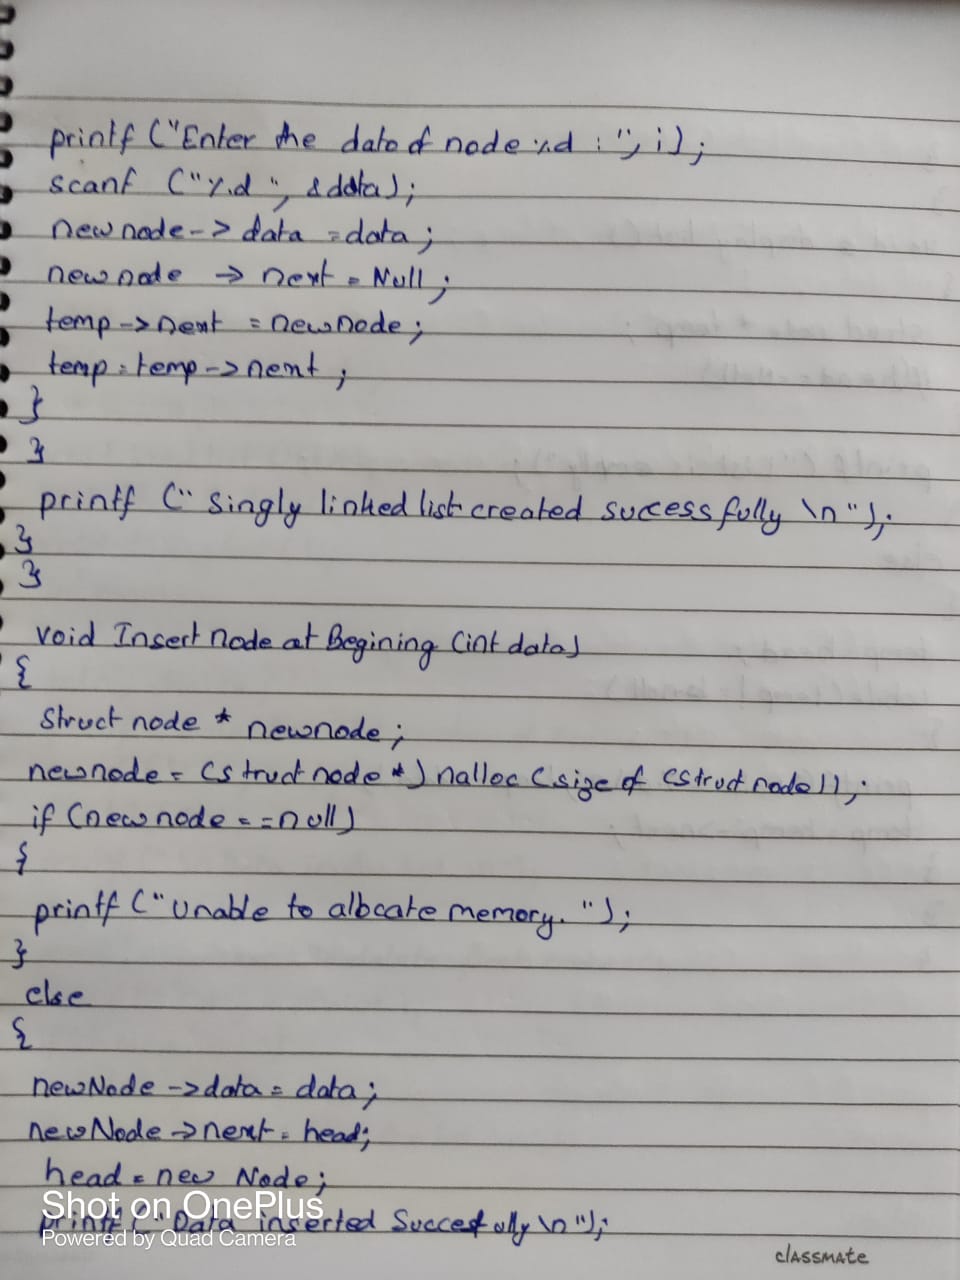 printf ("Enter the data of node %d : ", i);
scanf ("%d", &data);
newnode -> data = data;
newnode -> next = Null;
temp -> next = newnode;
temp = temp -> next;
}
}
printf (" singly linked list created successfully \n");
}
}
void Insert node at Begining (int data)
{
Struct node * newnode;
newnode = (struct node *) nalloc (size of (struct node));
if (newnode == null)
{
printf ("Unable to allocate memory. ");
}
else
{
newNode -> data = data;
newNode -> next = head;
head = new Node;
printf ("Data inserted Succesfully \n");
Shot on OnePlus
Powered by Quad Camera
classmate